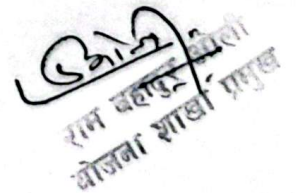 राम बहादुर ओली
योजना शाखा प्रमुख